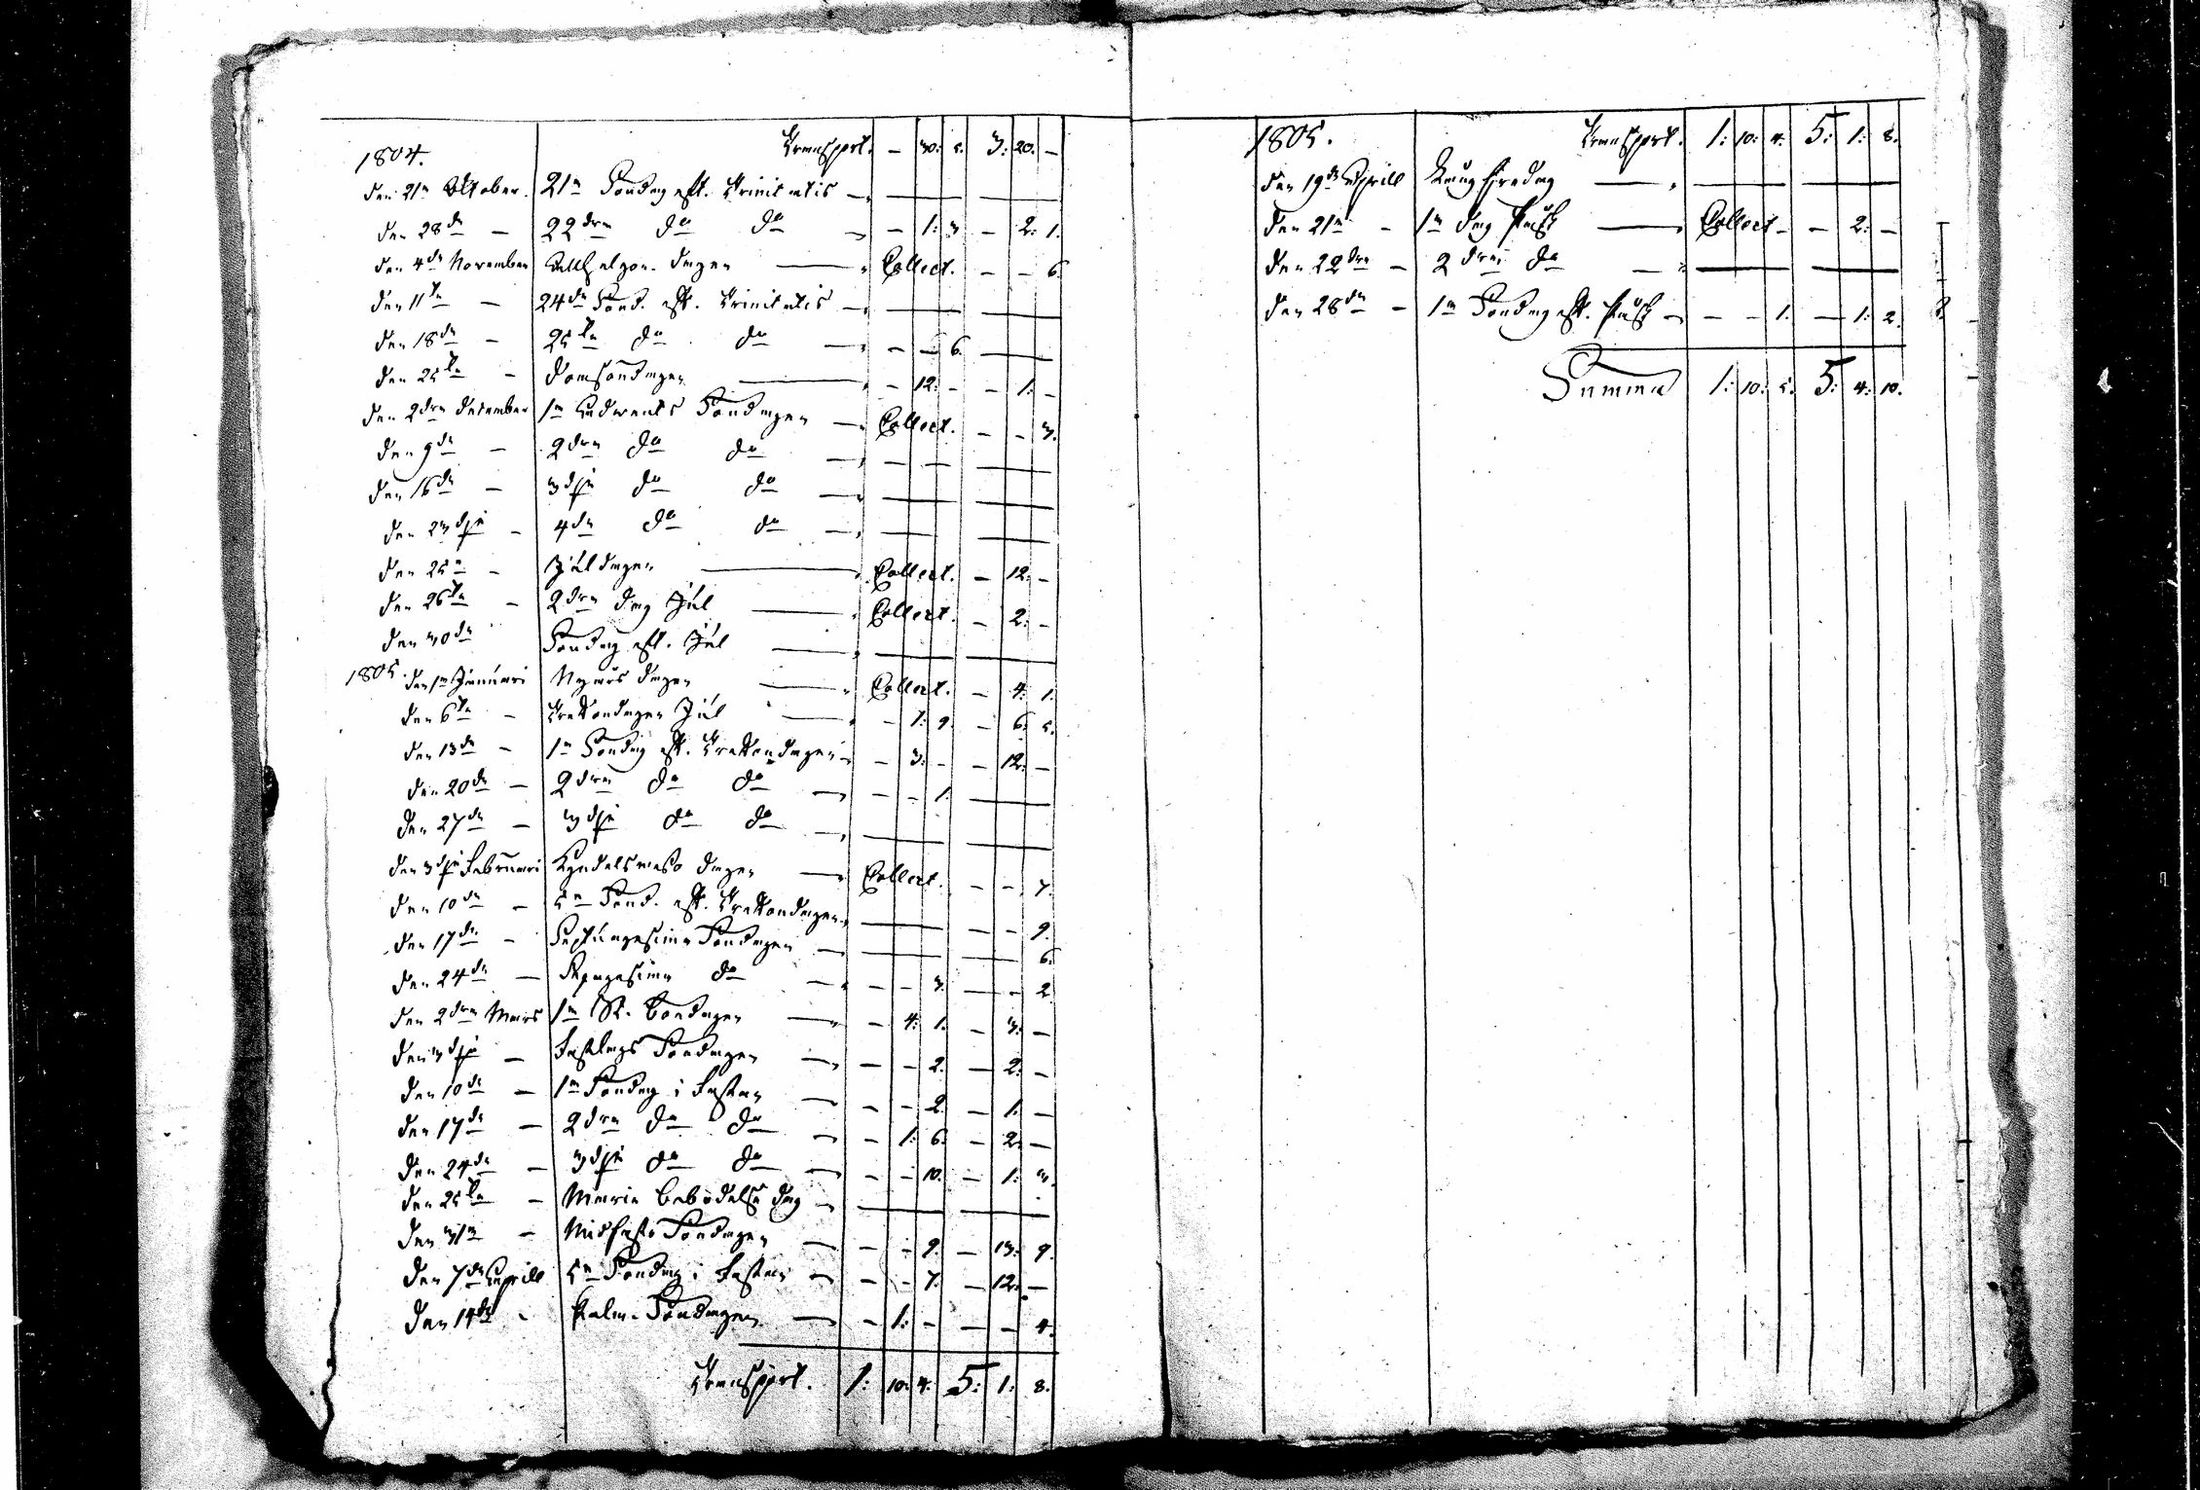 1804. Transport. – 30: 5. 3: 20. –
den 21n October. 21n Söndag eft. Trinitatis —
den 28de – 22dra do do — – 1: 3 – 2: 1.
den 4de November Allhelgon. dagen — Collect. – – 6
den 11te – 24de Sönd. eft. Trinitatis —
den 18de – 25te do do — – – 6.
den 25te – Domsöndagen — – 12: – – 1: –
den 2dra December 1n Advents Söndagen — Collect. – – 3.
den 9de – 2dra do do — – –
den 16de – 3dje do do —
den 23dje – 4de do do —
den 25n – Juldagen — Collect. – 12: –
den 26te – 2dra dag Jul — Collect. – 2: –
den 30de Söndag eft. Jul —
1805. den 1n Januari Nyårs dagen — Collect. – 4: 1.
den 6te – Trettondagen Jul — – 1: 9. – 6: 5.
den 13de – 1n Söndag eft. Trettondagen – – 3: – – 12: –
den 20de – 2dra do do — – – 1.
den 27de – 3dje do do —
den 3dje Februari Kyndelsmesso dagen — Collect. – – 7.
den 10de – 5n Sönd. eft. Trettondagen. — – – 9.
den 17de – Septuagesima Söndagen — – – 6.
den 24de – Sexagesima do — – – 3. – – 2
den 2dra Mars 1n St. Böndagen — – 4: 1. – 3: –
den 3dje – Fastlags Söndagen — – – 2. – 2: –
den 10de – 1n Söndag i Fastan — – – 2. – 1: –
den 17de – 2dra do do — – 1: 6. – 2: –
den 24de – 3dje do do — – – 10. – 1: 3.
den 25te – Maria Bebådelse dag —
den 31n – Midfasto Söndagen — – – 9. – 13: 9.
den 7de Aprill 5n Söndag i Fastan — – – 7. – 12: –
den 14de – Palm-Söndagen — – 1: – – – 4.
Transport. 1: 10: 4. 5: 1: 8.
1805. Transport. 1: 10: 4. 5: 1: 8.
den 19de Aprill Långfredag —
den 21n – 1n dag Påsk — Collect – – 2: –
den 22dra – 2dra do —
den 28de – 1n Söndag eft. Påsk – – – 1. – 1: 2.
Summa 1: 10: 5. 5: 4: 10.